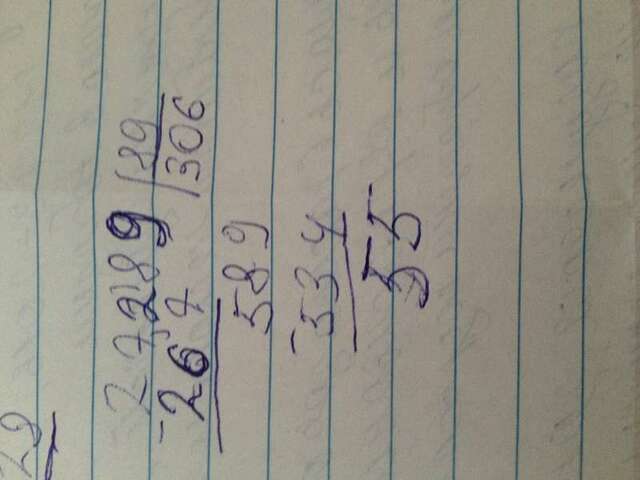 27289 |89
-267 |306
589
-534
55